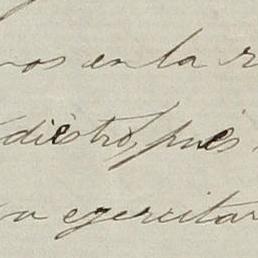 nos en la r
diestro, pues
a egercitar